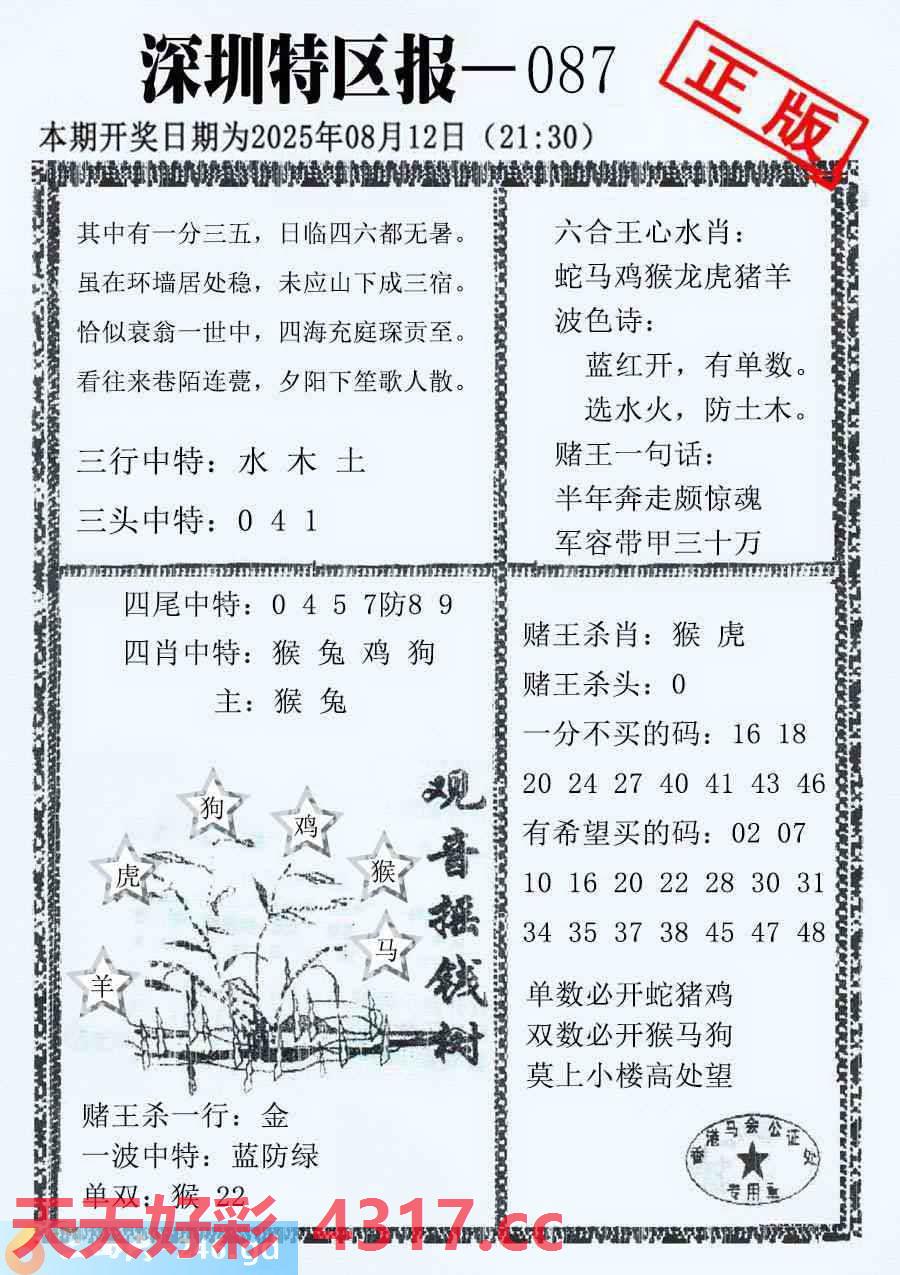 深圳特区报—087
正版
本期开奖日期为2025年08月12日（21:30）
其中有一分三五，日临四六都无暑。
虽在环墙居处稳，未应山下成三宿。
恰似衰翁一世中，四海充庭琛贡至。
看往来巷陌连甍，夕阳下笙歌人散。
三行中特：水 木 土
三头中特：0 4 1
六合王心水肖：
蛇马鸡猴龙虎猪羊
波色诗：
蓝红开，有单数。
选水火，防土木。
赌王一句话：
半年奔走颇惊魂
军容带甲三十万
四尾中特：0 4 5 7防8 9
四肖中特：猴 兔 鸡 狗
主：猴 兔
观音摇钱树
狗
鸡
虎
猴
马
羊
赌王杀一行：金
一波中特：蓝防绿
单双：猴 22
赌王杀肖：猴 虎
赌王杀头：0
一分不买的码：16 18
20 24 27 40 41 43 46
有希望买的码：02 07
10 16 20 22 28 30 31
34 35 37 38 45 47 48
单数必开蛇猪鸡
双数必开猴马狗
莫上小楼高处望
香港马会公证处
专用章
天天好彩 4317.cc